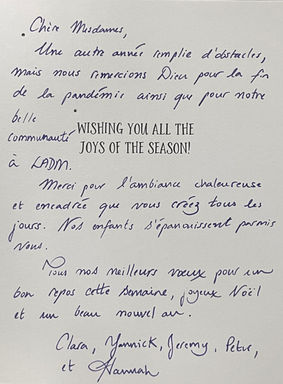 Chère Mesdames,
Une autre année remplie d'obstacles,
mais nous remercions Dieu pour la fin
de la pandémie ainsi que pour notre
belle
communauté
WISHING YOU ALL THE
JOYS OF THE SEASON!
à LADM.
Merci pour l'ambiance chaleureuse
et encadrée que vous créez tous les
jours. Nos enfants s'épanouissent parmis
vous.
Tous nos meilleurs vœux pour un
bon repos cette semaine, joyeux Noël
et un beau nouvel an.
Clara, Yannick, Jeremy, Peter,
et Hannah